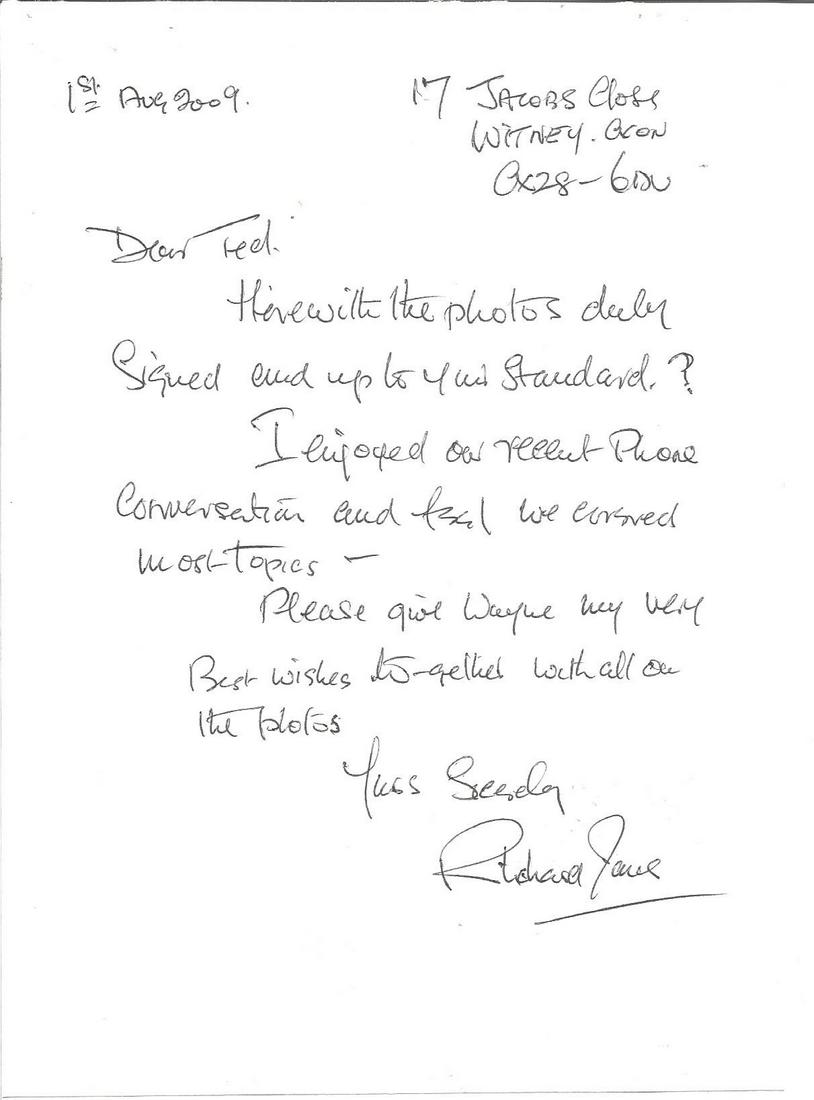 1st Aug 2009.
17 Jacobs Close
Witney. Oxon
OX28-6DU
Dear Ted.
Herewith the photos duly
Signed and up to your Standard.?
I enjoyed our recent Phone
Conversation and feel we covered
most Topics -
Please give Wayne my very
Best wishes to-gether with all on
the photos
Yours Sincerely
Richard